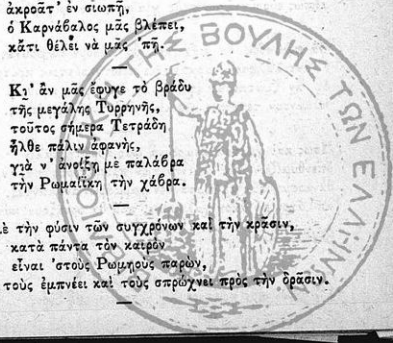 ἀκροᾶτ' ἐν σιωπῇ,
ὁ Καρνάβαλος μᾶς βλέπει,
κἄτι θέλει νὰ μᾶς 'πῇ.
—
Κι' ἂν μᾶς ἔφυγε τὸ βράδυ
τῆς μεγάλης Τυρρηνῆς,
τοῦτος σήμερα Τετράδη
ἦλθε πάλιν ἀφανής,
γιὰ ν' ἀνοίξῃ μὲ παλάβρα
τὴν Ρωμαίϊκη τὴν χάβρα.
—
ὲ τὴν φύσιν τῶν συγχρόνων καὶ τὴν κρᾶσιν,
κατὰ πάντα τὸν καιρὸν
εἶναι 'στοὺς Ρωμηοὺς παρὼν,
τοὺς ἐμπνέει καὶ τοὺς σπρώχνει πρὸς τὴν δρᾶσιν.
—
ΤΗΣ ΒΟΥΛΗΣ ΤΩΝ ΕΛΛΗΝΩΝ